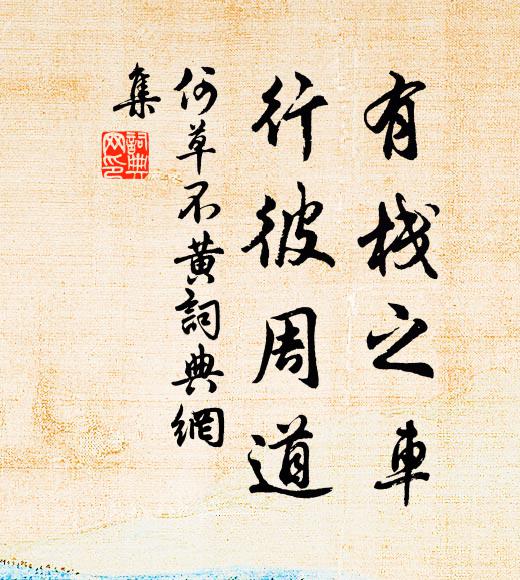 有棧之車
行彼周道
何草不黃詞典網
集
詞典
网印